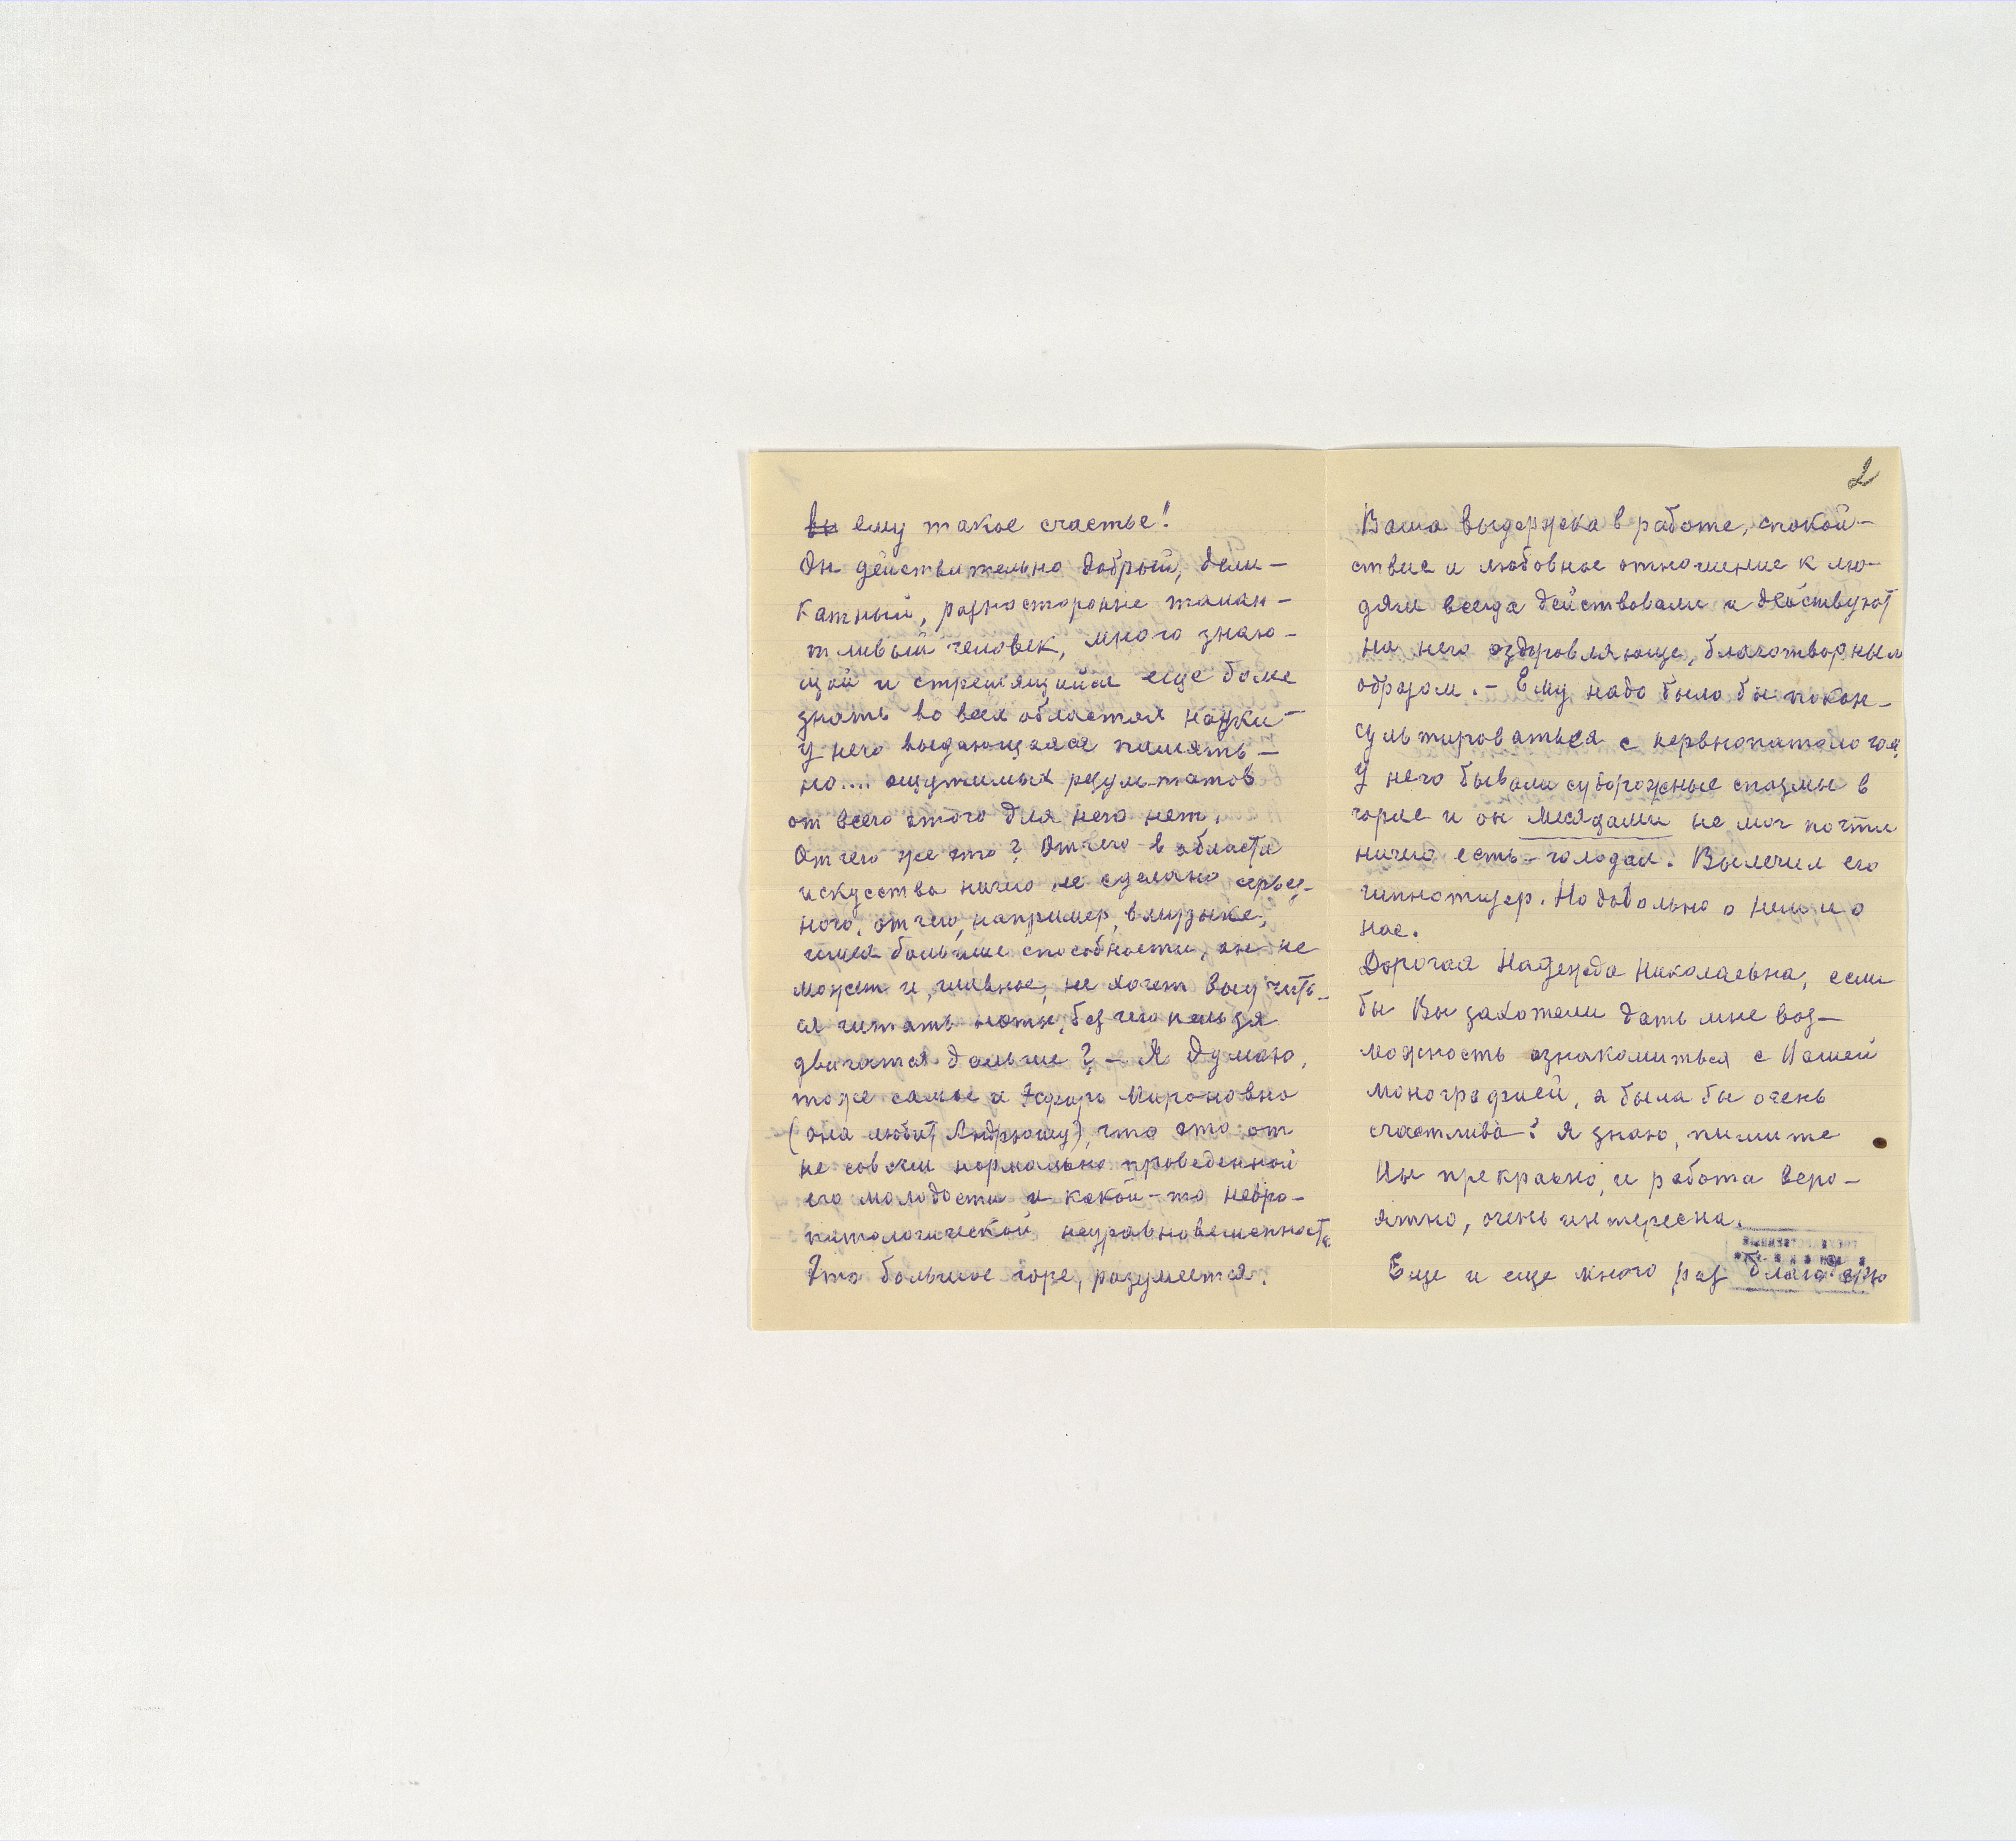 вы ему такое счастье!
Он действительно добрый, дели-
катный, разносторонне талан-
тливый человек, много знаю-
щий и стремящийся еще более
знать во всех областях науки —
У него выдающаяся память —
но.... ощутимых результатов
от всего этого для него нет.
Отчего же это? Отчего в области
искусства ничего не сделано серьез-
ного, отчего, например, в музыке,
имея большие способности, он не
может и, главное, не хочет выучить-
ся читать ноты, без чего нельзя
двигатся дальше? — Я думаю,
тоже самое и Эсфирь Мироновна
(она любит Андрюшу), что это от
не совсем нормально проведенной
его молодости и какой-то невро-
патологической неуравновешенности
Это большое горе, разумеется.
2
Ваша выдержка в работе, спокой-
ствие и любовное отношение к лю-
дям всегда действовали и действуют
на него оздоровляюще, благотворным
образом. — Ему надо было бы покон-
сультироваться с нервнопатологом
У него бывали судорожные спазмы в
горле и он месяцами не мог почти
ничего есть — голодал. Вылечил его
гипнотизер. Но довольно о нем и о
нас.
Дорогая Надежда Николаевна, если
бы Вы захотели дать мне воз-
можность ознакомиться с Вашей
монографией, я была бы очень
счастлива! Я знаю, пишите
Вы прекрасно, и работа веро-
ятно, очень интересна.
Еще и еще много раз благодарю